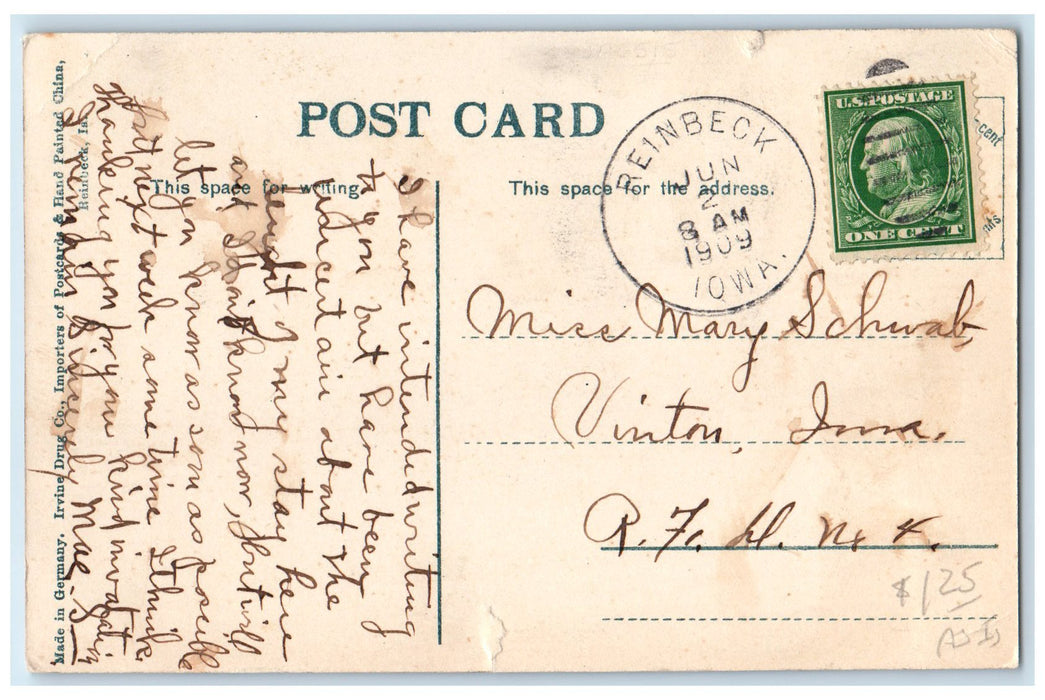 POST CARD
This space for writing.
This space for the address.
Made in Germany. Irvine Drug Co., Importers of Postcards & Hand Painted China,
Reinbeck, Ia.
I have intended writing
to you but have been
uncertain about the
length of my stay here
and I don't know now, but will
let you know as soon as possible
that next week some time I think.
Thanking you for your kind invitation
I remain Sincerely Mae. S.
REINBECK
JUN
2
8 AM
1909
IOWA.
U.S. POSTAGE
ONE CENT
cent
Miss Mary Schwab,
Vinton, Iowa.
R. F. D. No 4.
$1.25
AS IS